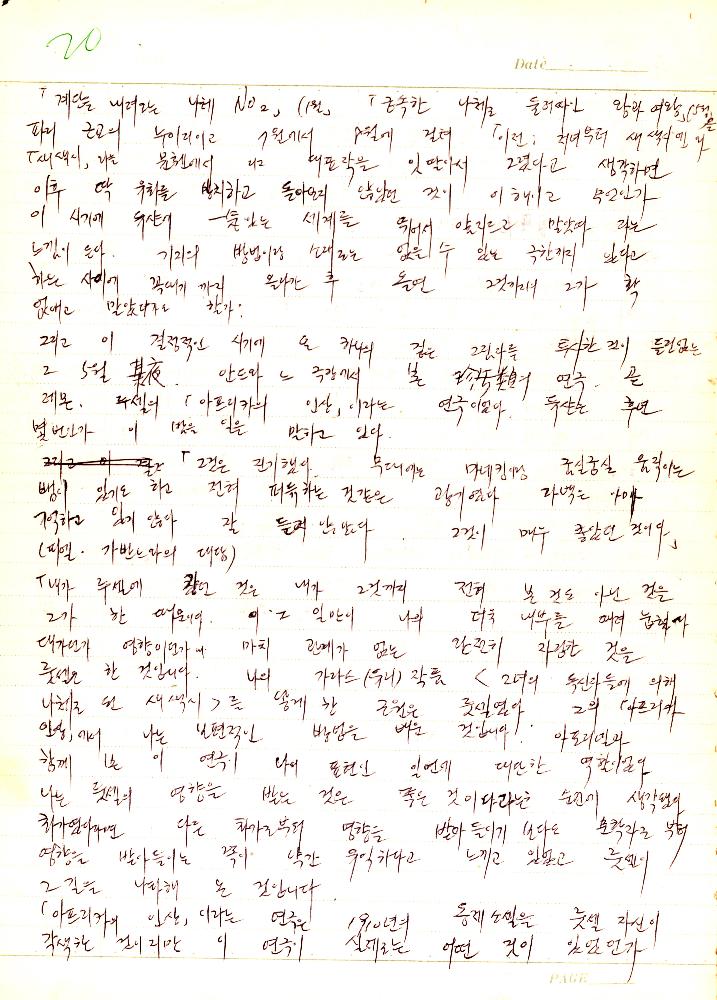 20
Date
「계단을 내려오는 나체 No 2, (1월, 「급속한 나체로 둘러싸인 왕과 여왕, (5월,을
파리 근교의 누이리이고 7월에서 8월에 걸쳐 「이전; 처녀부터 새색시에의
「새색시, 라는 뮌헨에서 나고 대표작을 잇달아서 그렸다고 생각하면
이후 딱 유화를 방치하고 돌아보지 않았던 것이 이 해이고 무엇인가
이 시기에 뒤샹이 세계를 뛰어서 앞지르고 말았다 라는
느낌이 든다. 기지의 방법이랑 소재로는 없을 수 있는 극한까지 왔다고
하는 사이에 꼭대기까지 올라간 후 돌연 그것까지 그가 확
없애고 말았다라도 할가.
그리고 이 결정적인 시기에 또 하나의 깊은 그림자를 투사한 것이 틀림없는
그 5월 某夜. 안드와느 극장에서 본 의 연극. 곧
레몬. 루셀의 「아프리카의 인상, 이라는 연극이었다. 뒤샹은 후년
몇 번인가 이 밤의 일을 말하고 있다.
「그것은 진기했다. 무대에는 마네킹과 굼실굼실 움직이는
뱀이 있기도 하고 전혀 퍼뜩하는 것같은 광기였다 각색은 아마
기억하고 있지 않다 잘 들려 안왔다. 그것이 매우 좋았던 것이다」
(피엘. 가반느와의 대담)
「내가 루셀에 것은 내가 그것까지 전혀 본 것도 아닌 것을
그가 한 때문이다. 이.그 일만이 나의 더욱 내부를
대가인가 영향이던가 마치 관계가 없는 완전히 자립한 것을
룻셀은 한 것입니다. 나의 가라스(유리)작품 <그녀의 독신자들에 의해
나체로 된 새색시>를 낳게 한 근원은 룻셀였다 그의 「아프리카
인상,에서 나는 보편적인 방법을 배운 것입니다. 아포리넬과
함께 본 이 연극이 나의 표현인 일면에 대단한 역할이었다
나는 룻셀의 영향을 받는 것은 좋은 것이다라는 순간에 생각했다
화가였다라면 다른 화가로부터 영향을 받아들이기 보다도 문학자로부터
영향을 받아들이는 쪽이 약간 유익하다고 느끼고 있었고 룻셀이
그 길을 나타해 준 것입니다
「아프리카의 인상, 이라는 연극은 1910년의 동제소설을 룻셀 자신이
각색한 것이리만 이 연극이 실제로는 어떤 것이 있었던가
PAGE